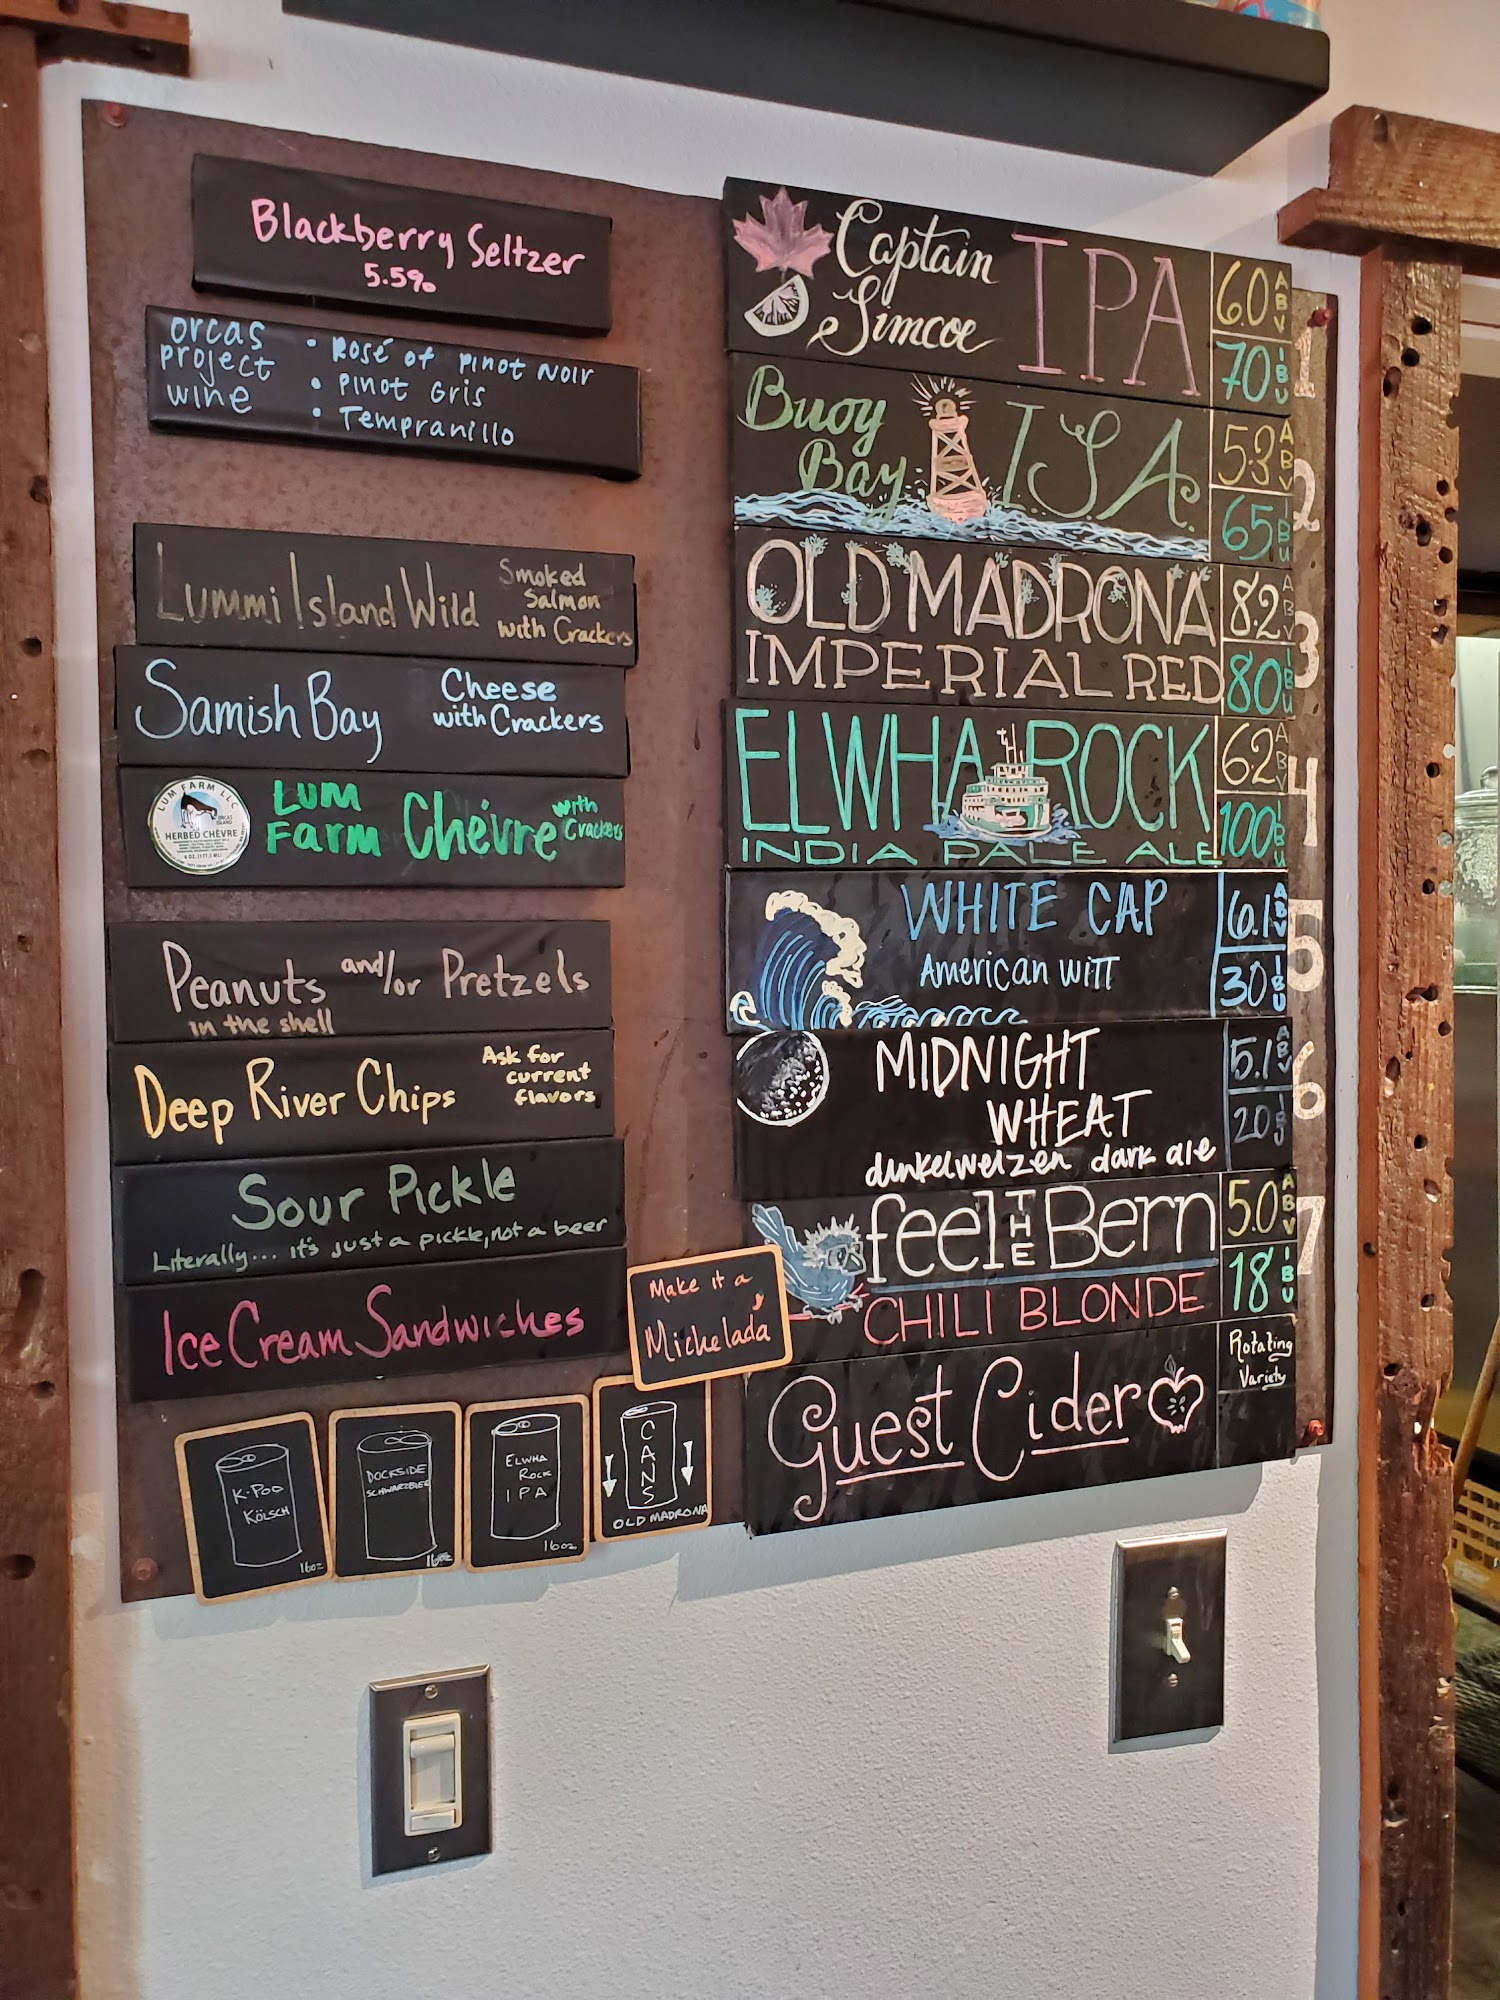 Blackberry Seltzer
5.5%
orcas
project
wine
• Rosé of Pinot Noir
• Pinot Gris
• Tempranillo
Lummi Island Wild
Smoked
Salmon
with Crackers
Samish Bay
Cheese
with Crackers
LUM FARM LLC
ORCAS
ISLAND
HERBED CHÈVRE
6 OZ. (177.5 ML)
Lum
Farm
Chévre
with
Crackers
Peanuts and/or Pretzels
in the shell
Deep River Chips
Ask for
current
flavors
Sour Pickle
Literally... it's just a pickle, not a beer
Ice Cream Sandwiches
Make it a
Michelada
K-Pod
Kölsch
16oz
Dockside
Schwarzbier
16oz
Elwha
Rock
IPA
16oz
CANS
OLD MADRONA
Captain
Simcoe
IPA
6.0 ABV
70 IBU
1
Buoy
Bay
I.S.A.
5.3 ABV
65 IBU
2
OLD MADRONA
IMPERIAL RED
8.2 ABV
80 IBU
3
ELWHA ROCK
INDIA PALE ALE
6.2 ABV
100 IBU
4
WHITE CAP
American Witt
6.1 ABV
30 IBU
5
MIDNIGHT
WHEAT
dunkelweizen dark ale
5.1 ABV
20 IBU
6
feel THE Bern
CHILI BLONDE
5.0 ABV
18 IBU
7
Guest Cider
Rotating
Variety